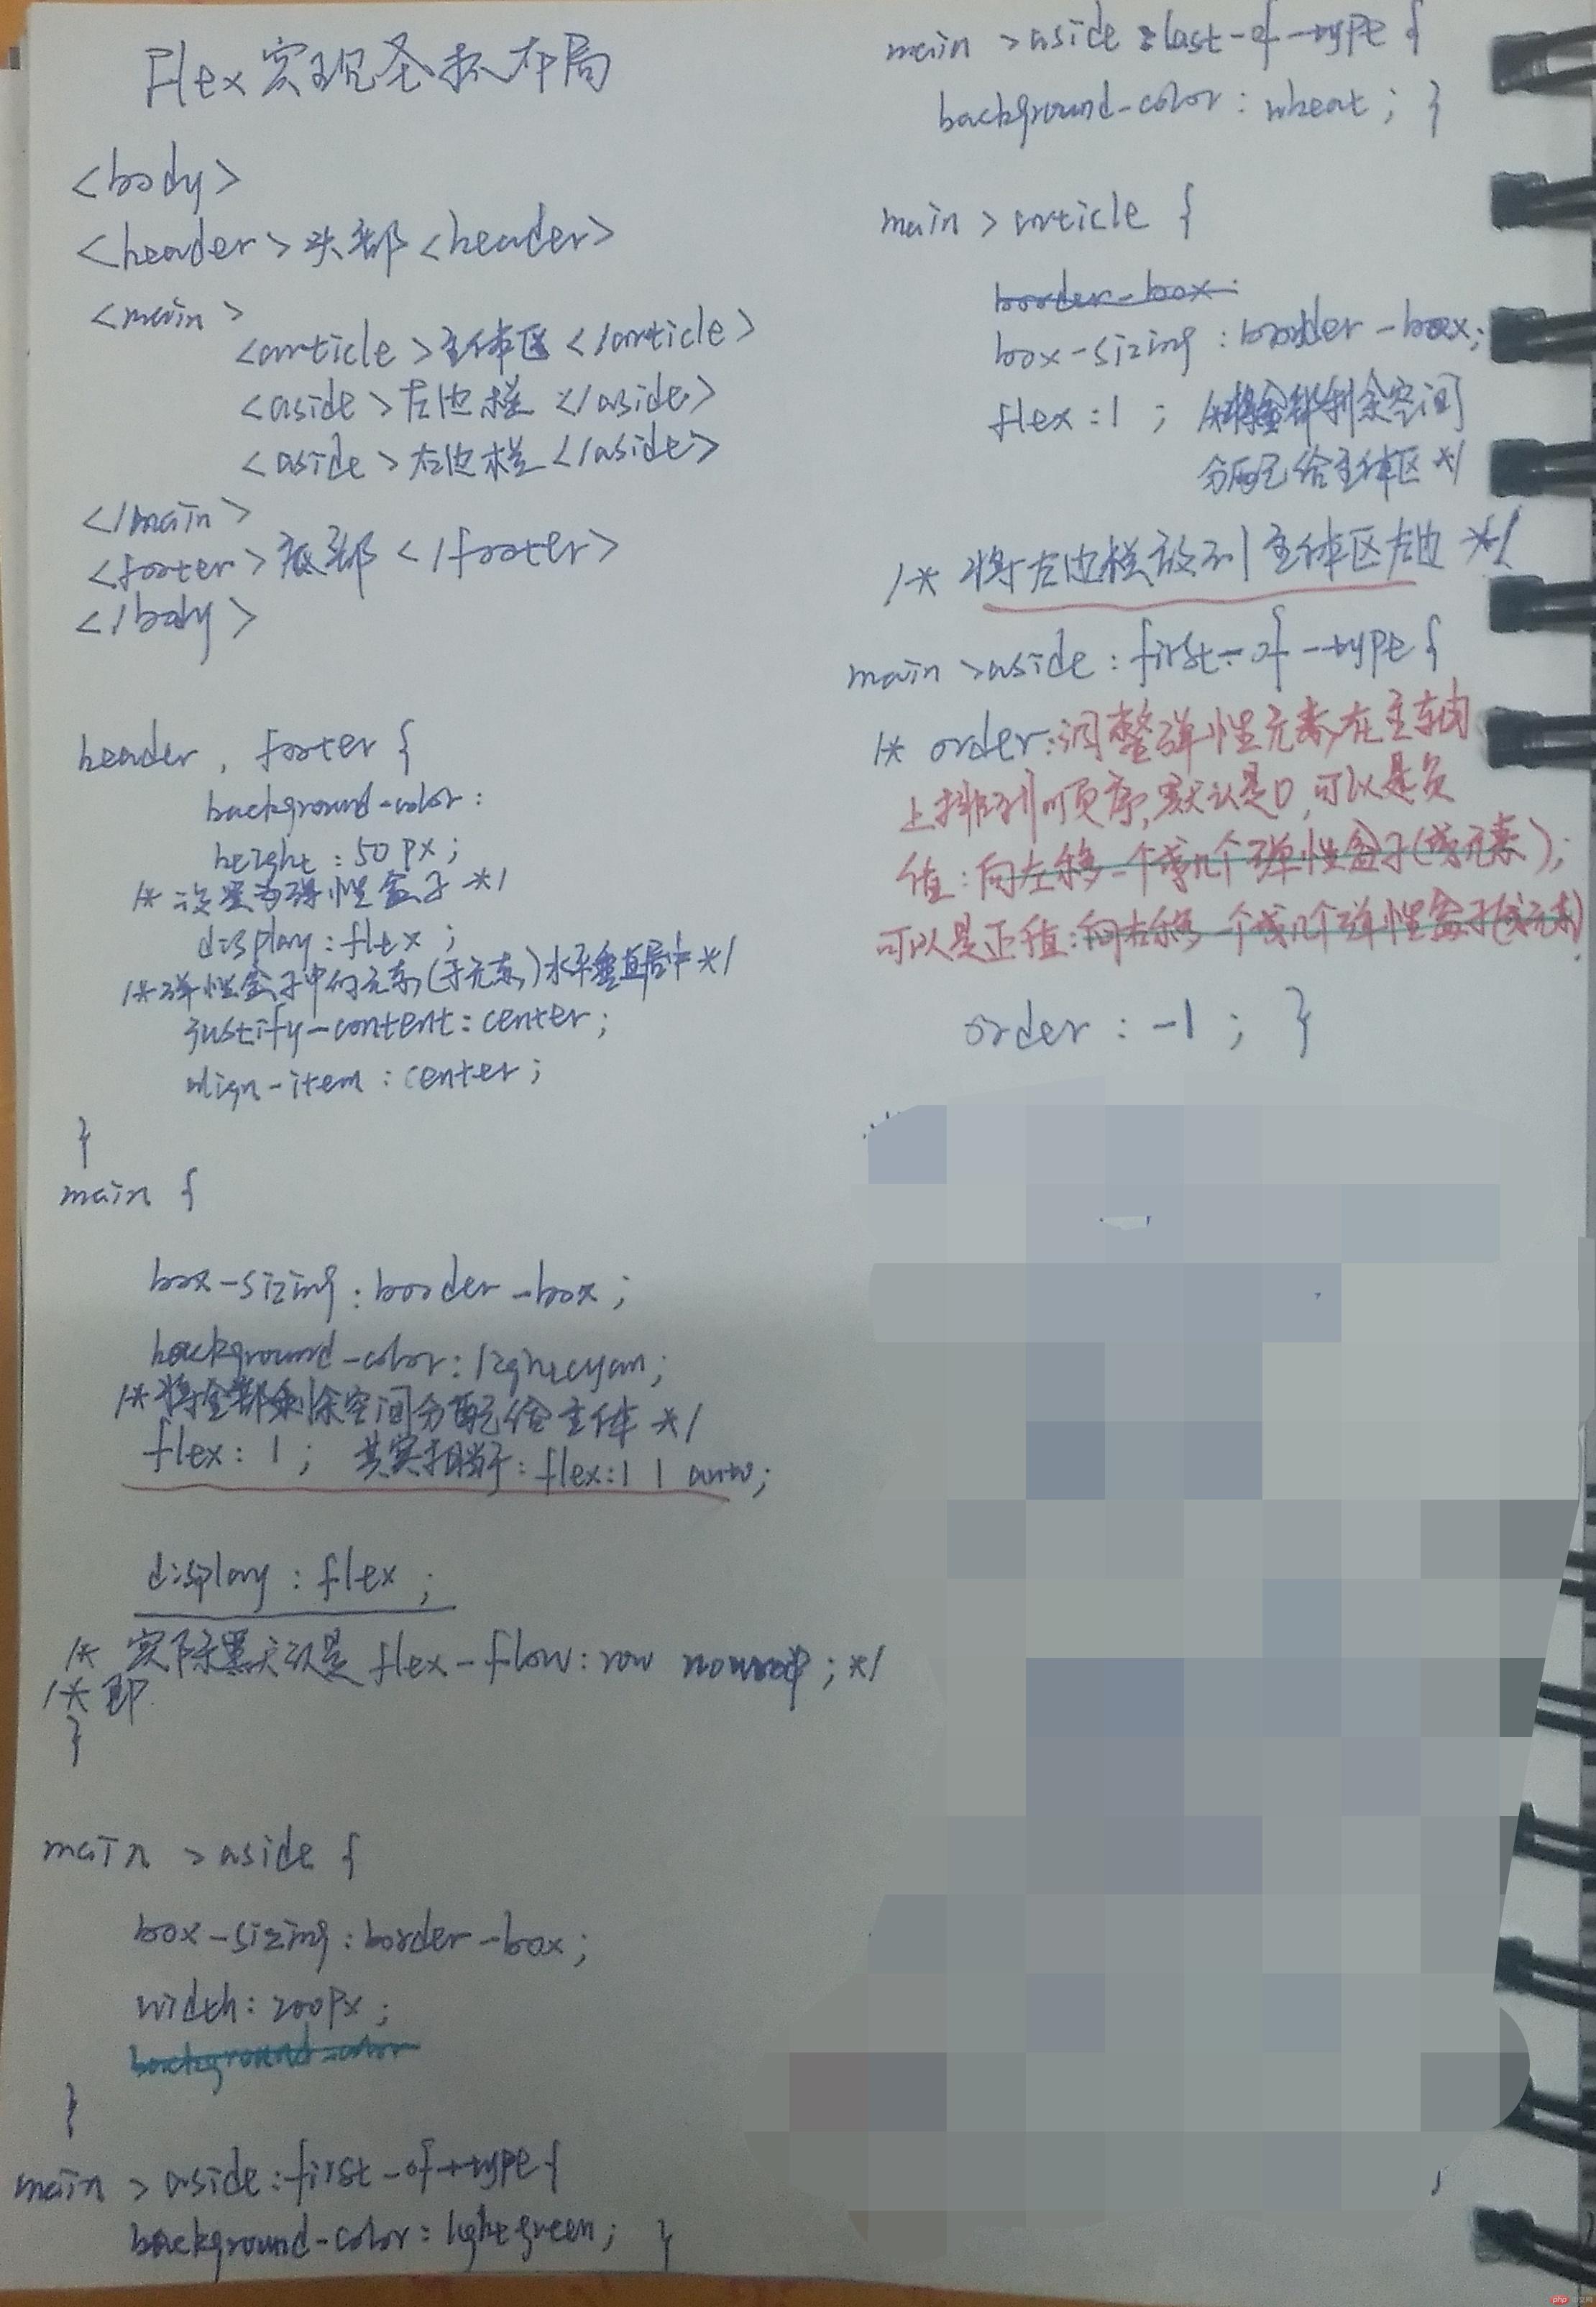 Flex实现圣杯布局
<body>
<header>头部<header>
<main>
<article>主体区</article>
<aside>左边栏</aside>
<aside>右边栏</aside>
</main>
<footer>底部</footer>
</body>
header, footer {
background-color:
height:50px;
/*设置为弹性盒子*/
display:flex;
/*弹性盒子中的元素(子元素)水平垂直居中*/
justify-content:center;
align-item:center;
}
main {
box-sizing:border-box;
background-color:lightcyan;
/*将全部剩余空间分配给主体*/
flex:1; 其实相当于:flex:1 1 auto;
display:flex;
/* 实际默认是 flex-flow:row nowrap;*/
/* 即
}
main >aside {
box-sizing:border-box;
width:200px;
background-color
}
main >aside:first-of-type{
background-color:lightgreen; }
main >aside:last-of-type {
background-color:wheat; }
main >article {
border-box:
box-sizing:border-box;
flex:1; /*将全部剩余空间
分配给主体区*/
/* 将左边栏放到主体区左边 */
main >aside:first-of-type{
/* order:调整弹性元素在主轴
上排列顺序,默认是0,可以是负
值:向左移一个或几个弹性盒子(或元素);
可以是正值:向右移一个或几个弹性盒子(或元素)
order:-1; }
php